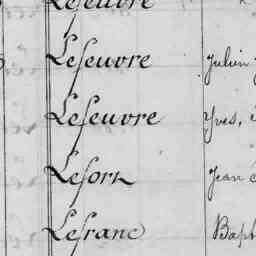 Lefeuvre
Lefeuvre Julien
Lefeuvre Yves,
Lefort Jean
Lefranc Bapt